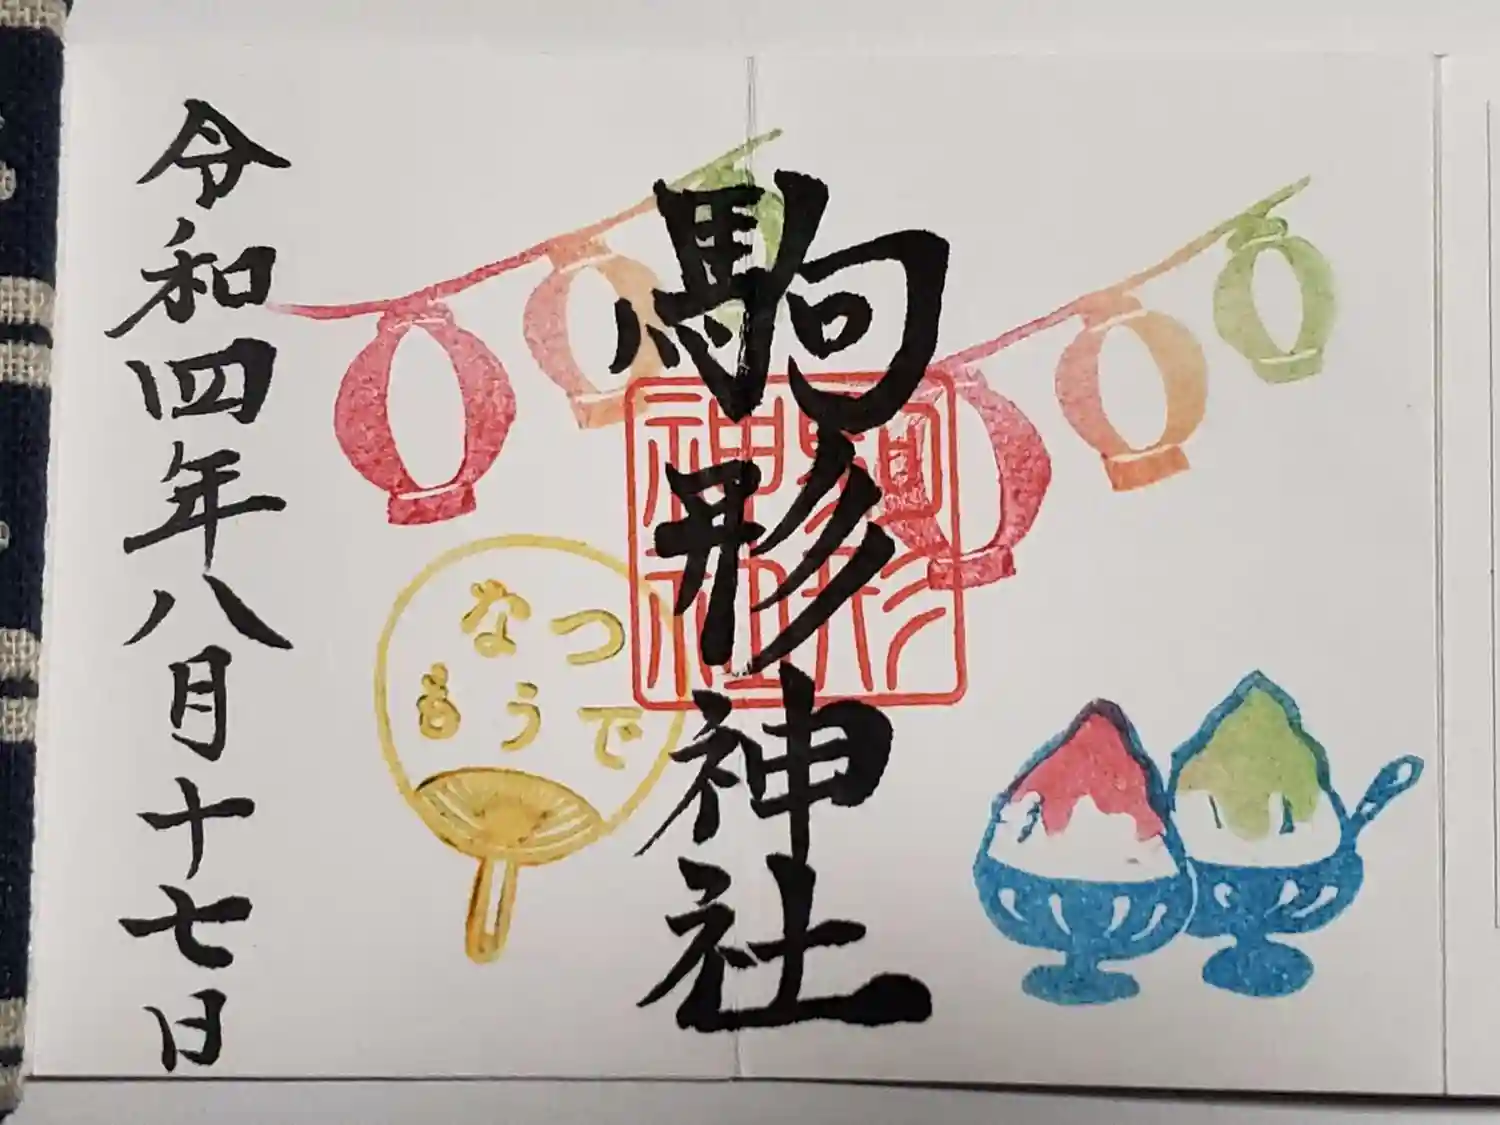 駒形神社
駒形
神社
なつ
もうで
令和四年八月十七日